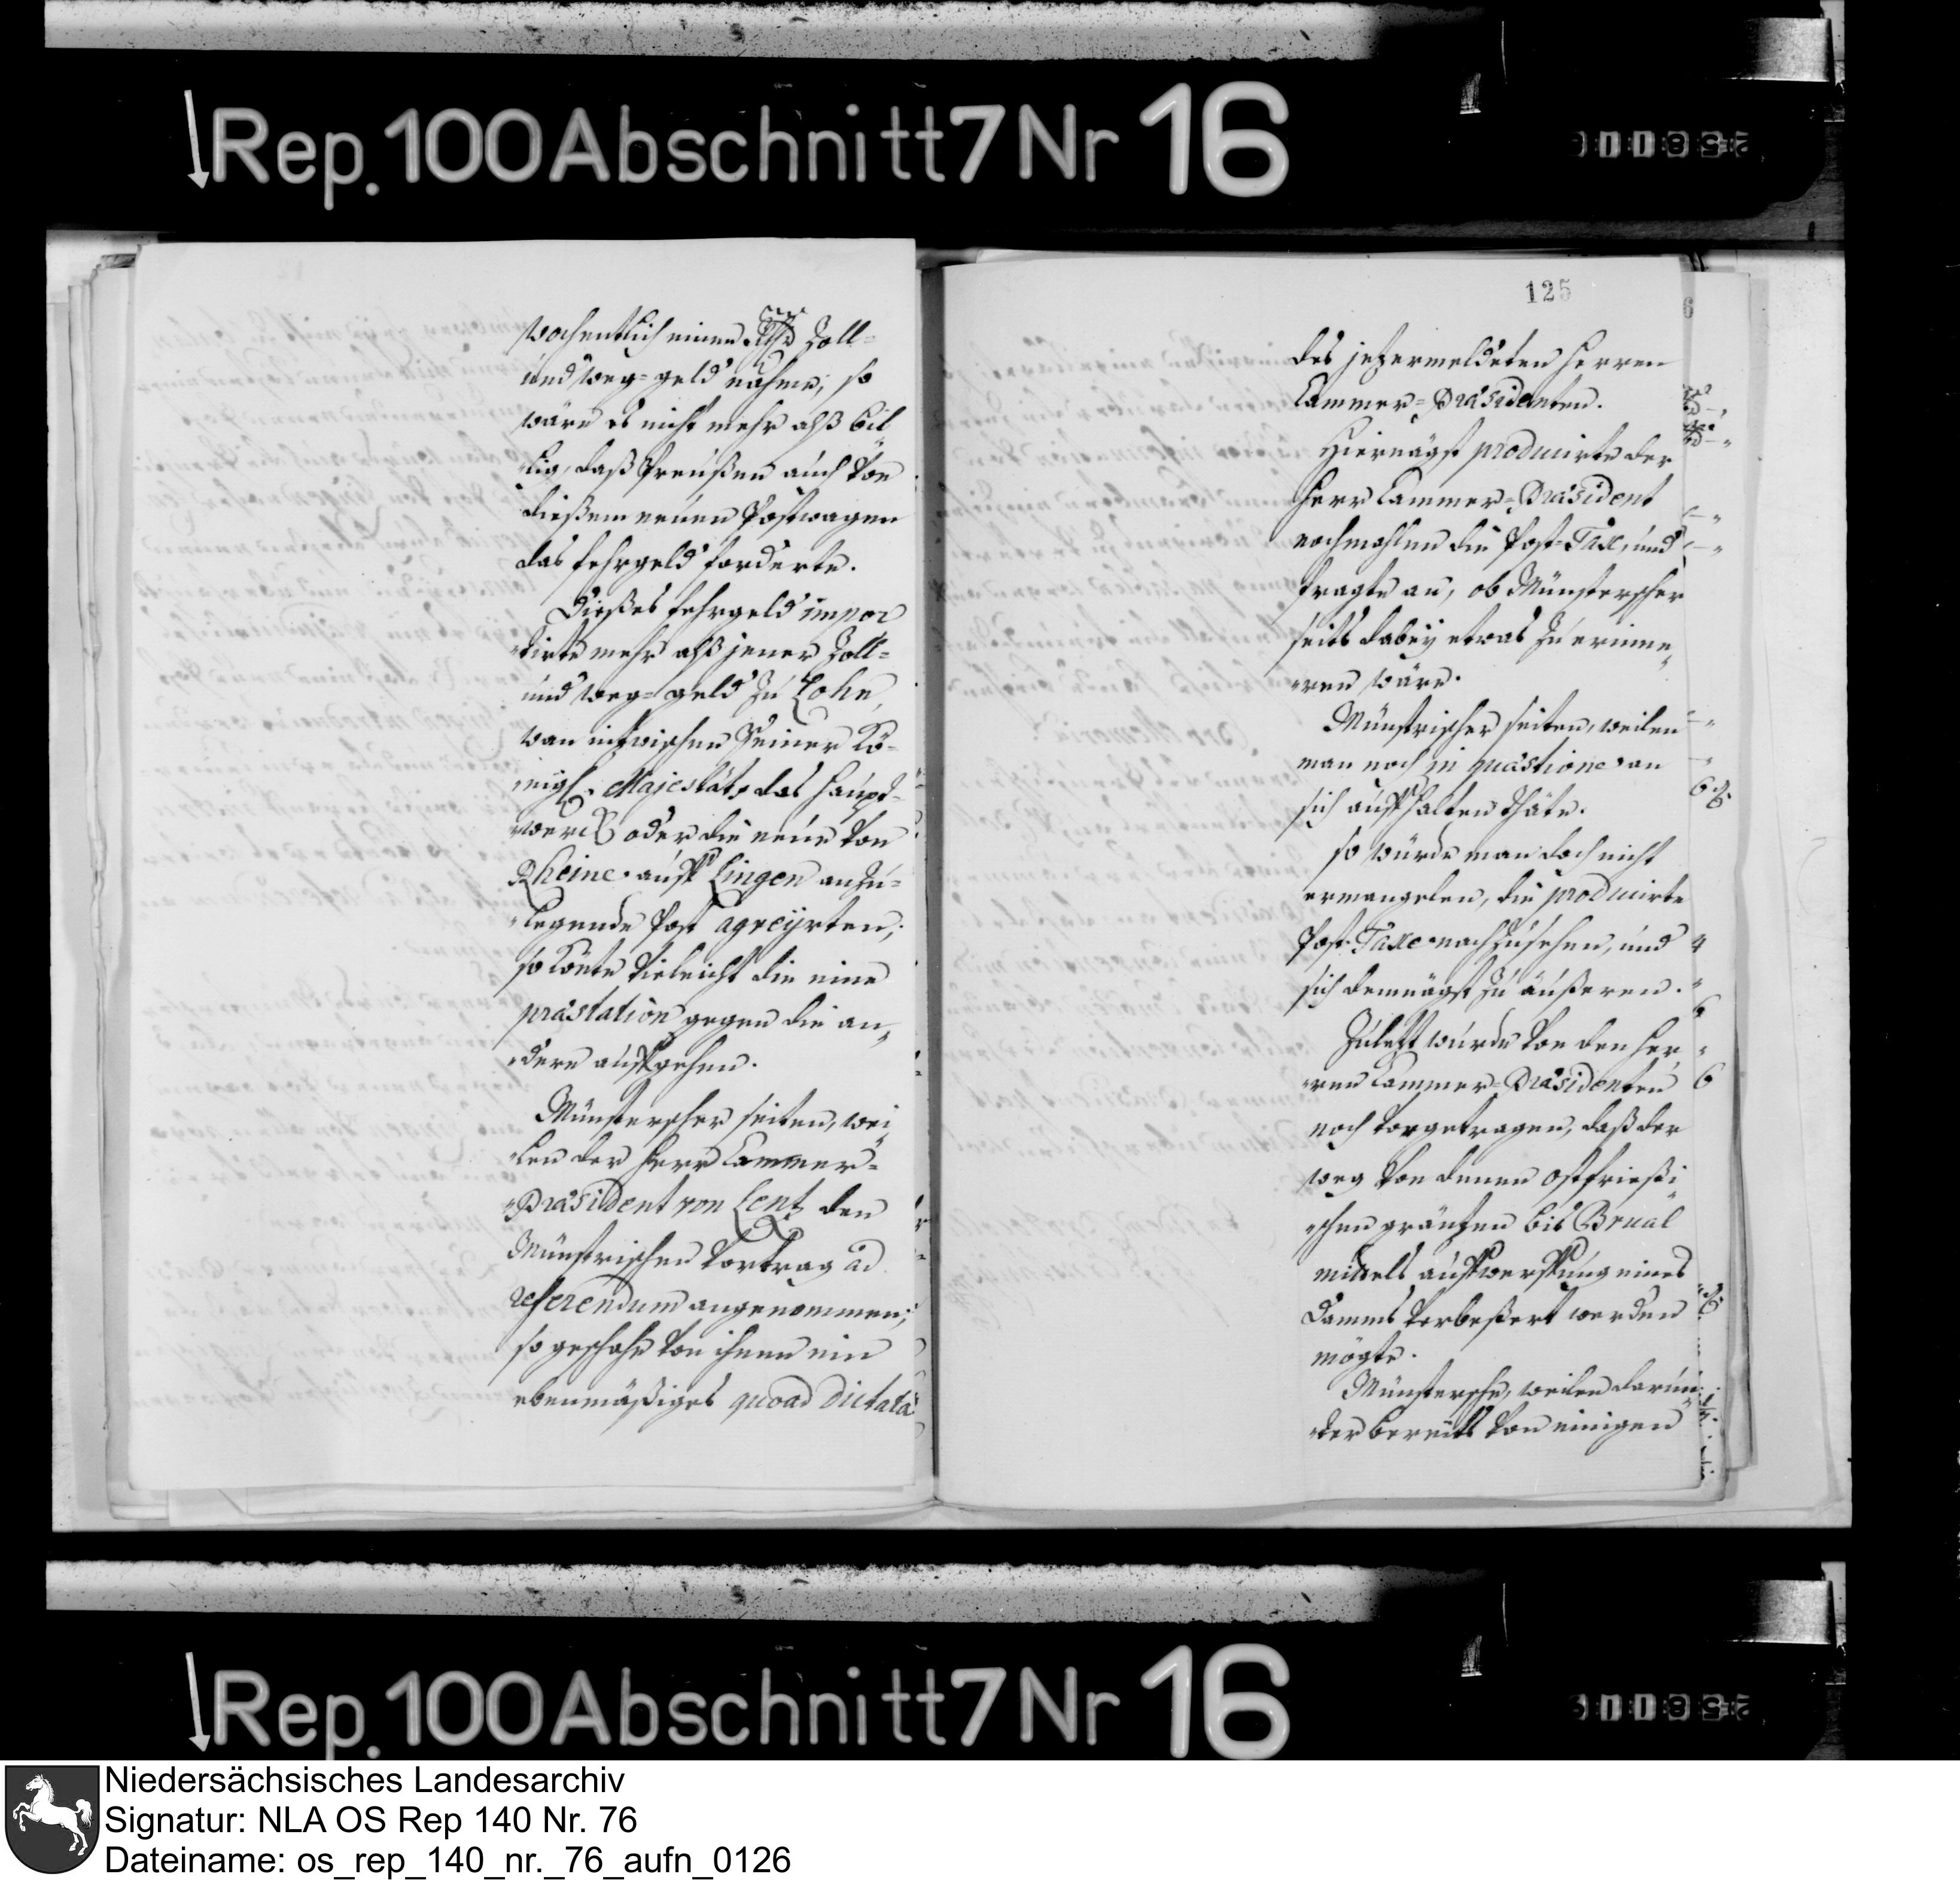 Rep. 100 Abschnitt 7 Nr 16
wochentlich einen Rthr Zoll=
und weg=geld nahme; so
wäre es nicht mehr alß bil
lig, daß Preußen auch von
dießem neuen Postwagen
das fehrgeld forderte.
Dießes fehrgeld impor
tirte mehr alß jener Zoll=
und weg=geld zu Lohn,
wan intwischen Seiner Kö-
nigl. Majestäts das haupt-
werck oder die neue von
Rheine auff Lingen anzu=
legende Post agreijrten;
so könte vieleicht die eine
præstation gegen die an„
„dere auffgehen.
Münsterscher seiten, wei„
„len der Herr Cammer=
Præsident von Lentz den
Münstrischen vortrag ad
referendum angenommen;
so geschahe von ihnen ein
ebenmäßiges quoad dictata
125
des jetzermeldeten Herren
Cammer=Præsidenten.
Hiernägst producirte der
Herr Cammer=Præsident
nochmahlen die Post=Tax, und
fragte an, ob Münsterscher
seits dabeÿ etwas zu erinne„
„ren wäre.
Münstrischer seiten, weilen
man noch in quæstione an
sich auffhalten thäte.
so würde man doch nicht
ermangelen, die producirte
Post=Taxe nachzusehen, und
sich demnägst zu äußeren.
Zuletzt wurde von den Her„
„ren Cammer=Præsidenten
noch vorgetragen, daß der
weg von denen ostfrießi„
„schen gräntzen bis Brual
mittels auffwerffung eines
Damms verbeßert werden
mögte.
Münstersche, weilen darun„
„der bereits von einigen
Rep. 100 Abschnitt 7 Nr 16
Niedersächsisches Landesarchiv
Signatur: NLA OS Rep 140 Nr. 76
Dateiname: os_rep_140_nr._76_aufn_0126